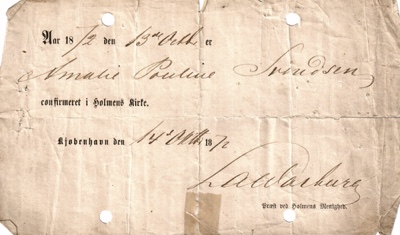 Aar 1872 den 13de Octbr er
Amalie Pouline Svendsen
confirmeret i Holmens Kirke.
Kjøbenhavn den 14de Octbr 1872
Præst ved Holmens Menighed.